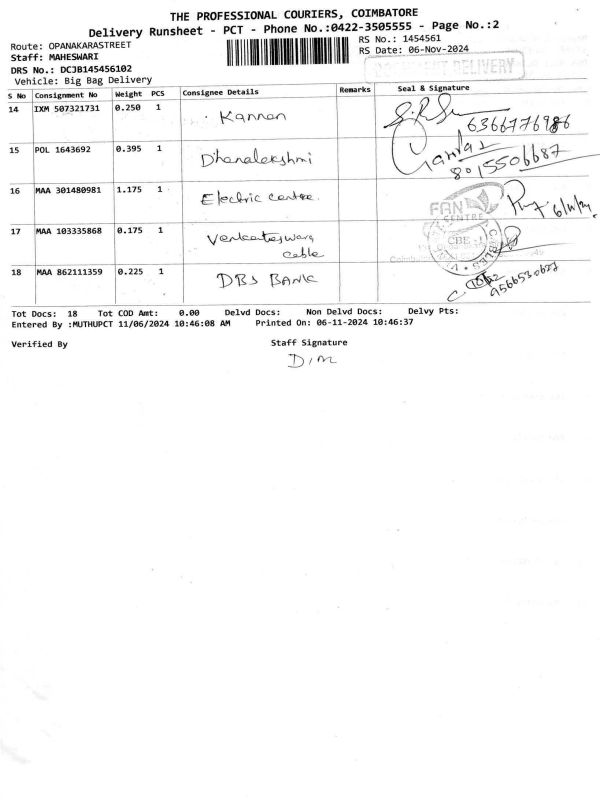 THE PROFESSIONAL COURIERS, COIMBATORE
Delivery Runsheet - PCT - Phone No.:0422-3505555 - Page No.:2
Route: OPANAKARASTREET
RS No.: 1454561
Staff: MAHESWARI
RS Date: 06-Nov-2024
DRS No.: DCJB145456102
DELIVERY
Vehicle: Big Bag Delivery
S No Consignment No Weight PCS Consignee Details Remarks Seal & Signature
14 IXM 507321731 0.250 1 Kannan
6366776986
15 POL 1643692 0.395 1 Dhanalekshmi
8015506687
16 MAA 301480981 1.175 1 Electric centre.
FAN CENTRE
6/11/24
17 MAA 103335868 0.175 1 Venkateswara cable
CBE - 1
CABLES
18 MAA 862111359 0.225 1 DBS BANK
9566530627
Tot Docs: 18 Tot COD Amt: 0.00 Delvd Docs: Non Delvd Docs: Delvy Pts:
Entered By :MUTHUPCT 11/06/2024 10:46:08 AM Printed On: 06-11-2024 10:46:37
Verified By Staff Signature